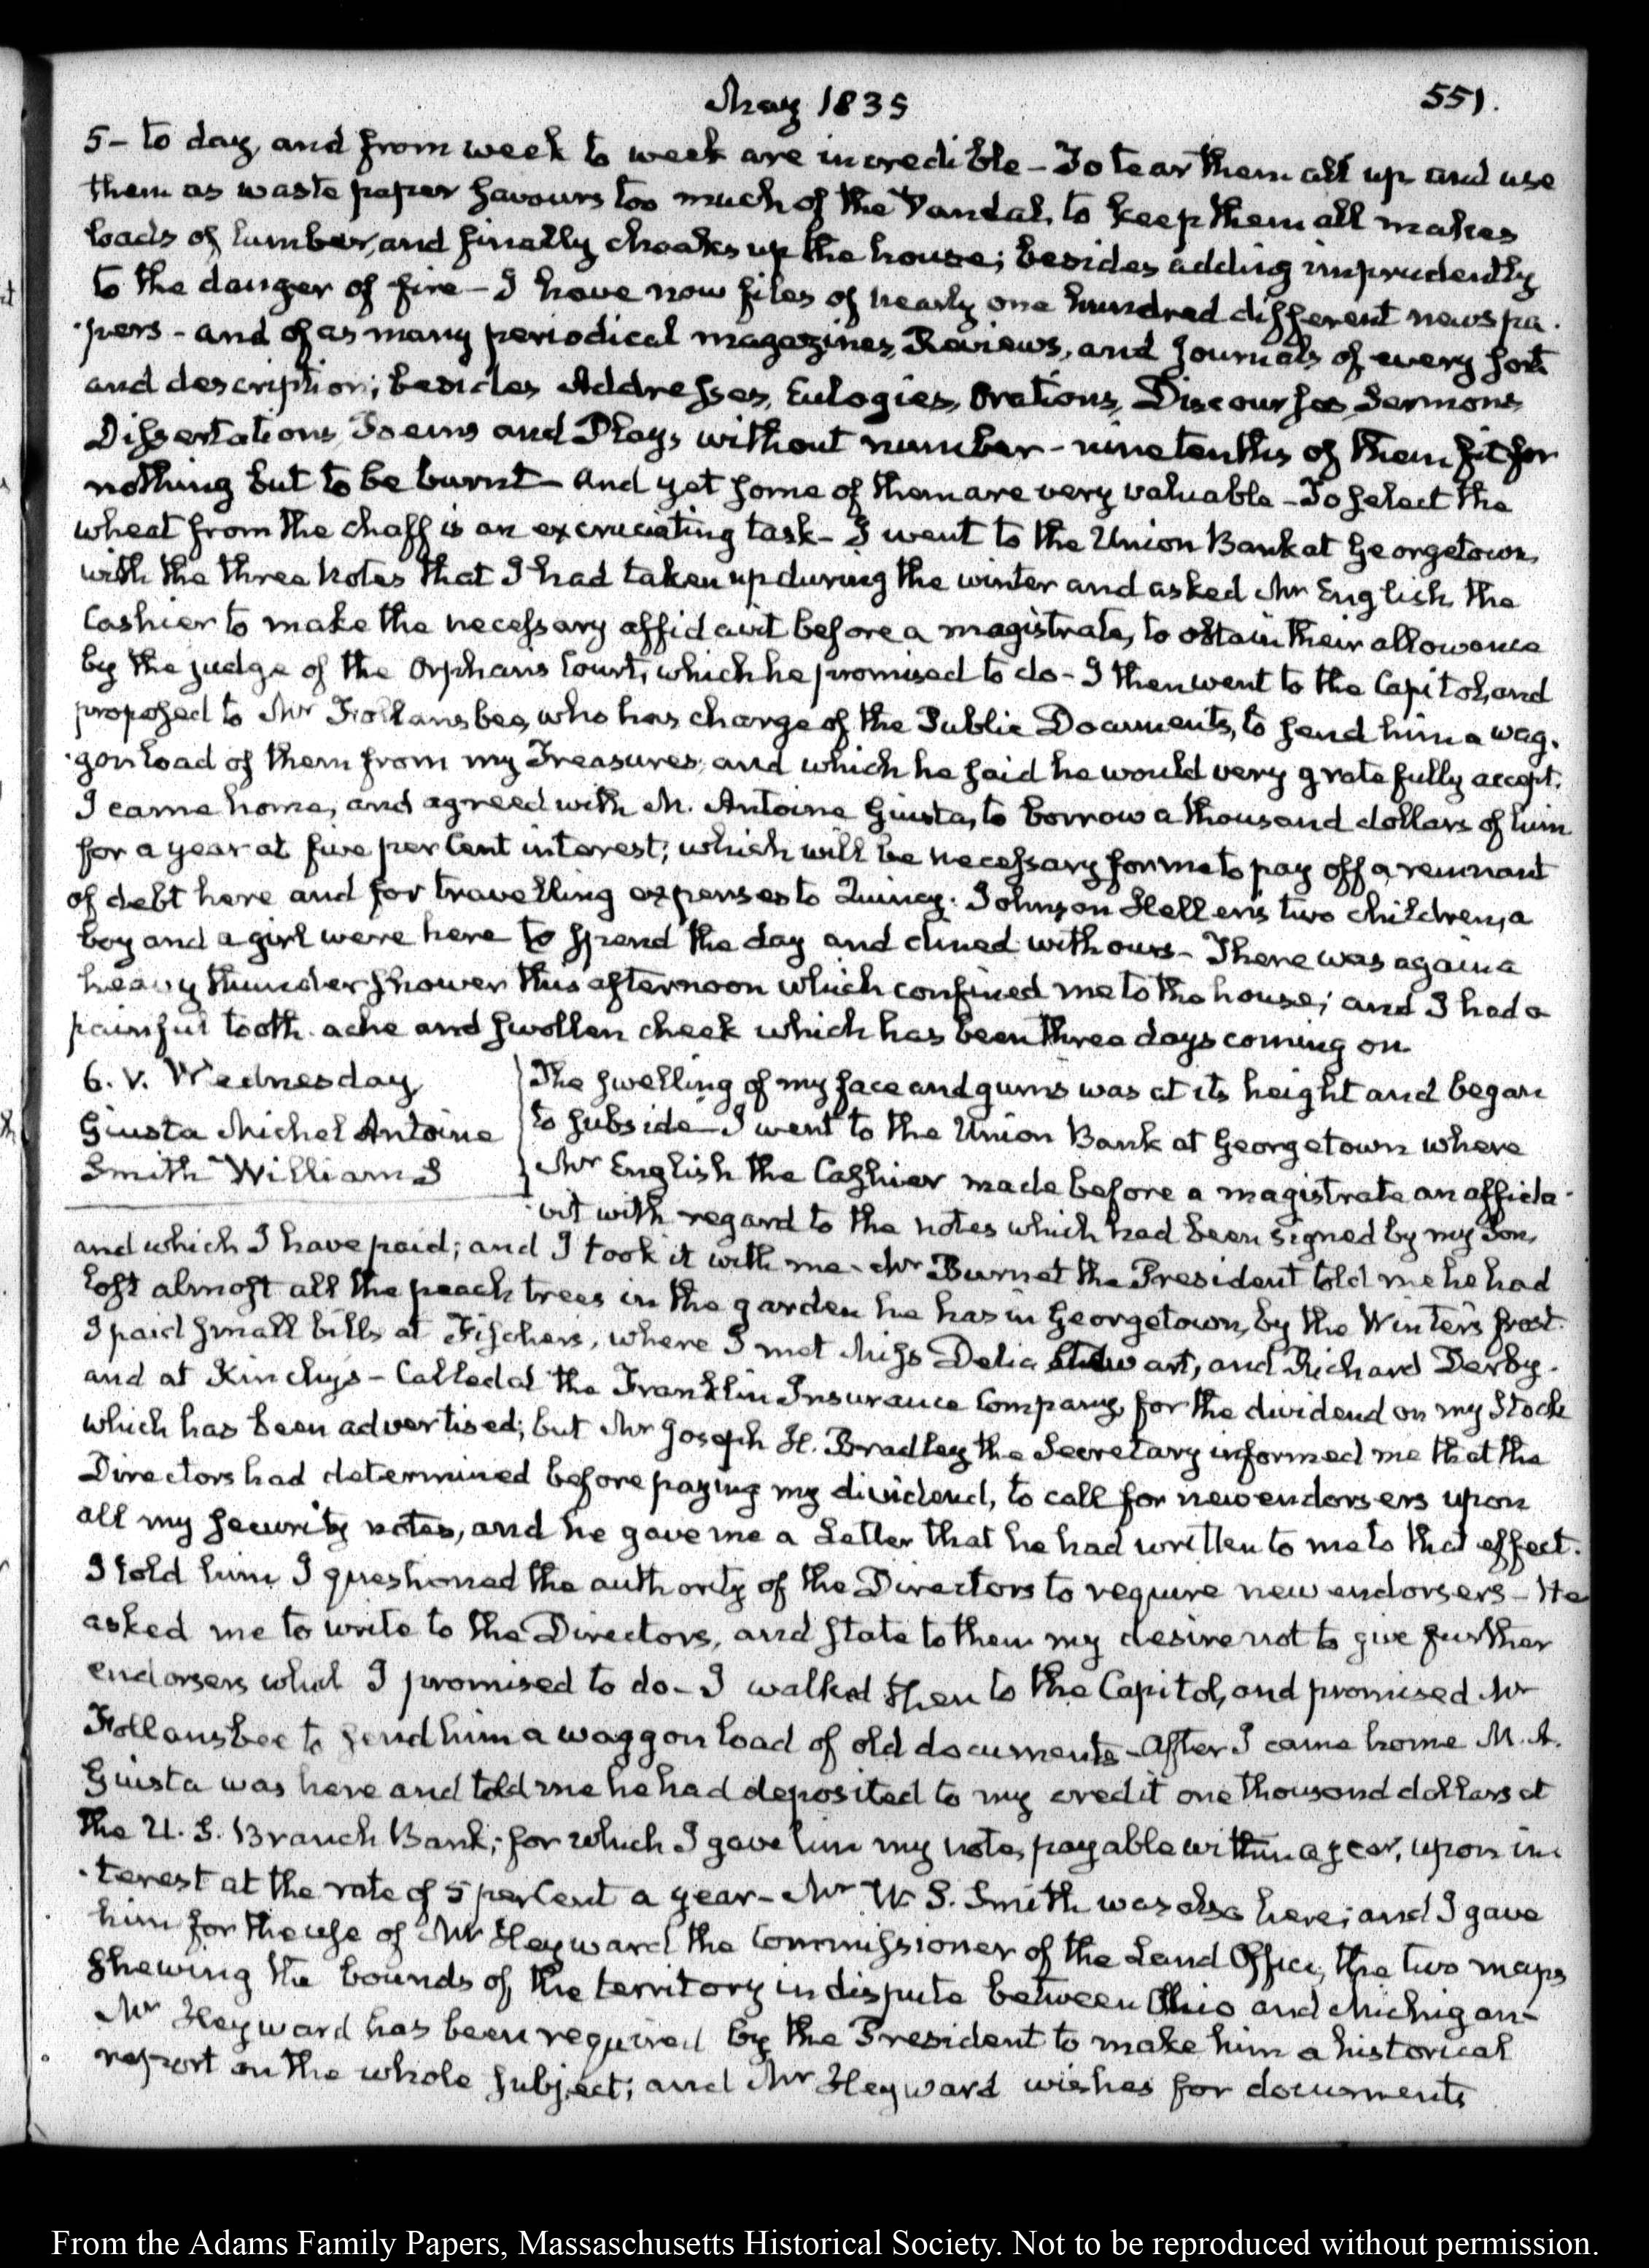 May 1835
551.
5- to day, and from week to week are incredible - To tear them all up and use
them as waste paper savours too much of the Vandal, to keep them all makes
loads of lumber, and finally choaks up the house; besides adding imprudently
to the danger of fire - I have now files of nearly one hundred different newspa-
-pers - and of as many periodical magazines, Reviews, and Journals of every sort
and description; besides Addresses, Eulogies, Orations, Discourses, Sermons,
Dissertations, Poems and Plays, without number - nine tenths of them fit for
nothing but to be burnt - And yet some of them are very valuable - To select the
wheat from the chaff is an excruciating task - I went to the Union Bank at Georgetown,
with the three Notes that I had taken up during the winter and asked Mr English the
Cashier to make the necessary affidavit before a magistrate, to obtain their allowance
by the judge of the Orphans Court, which he promised to do - I then went to the Capitol, and
proposed to Mr Follansbee, who has charge of the Public Documents, to send him a wag-
-gon load of them from my Treasures; and which he said he would very gratefully accept.
I came home, and agreed with M. Antoine Giusta, to borrow a thousand dollars of him
for a year at five per Cent interest; which will be necessary for me to pay off a remnant
of debt here and for travelling expenses to Quincy. Johnson Hellen's two children, a
boy and a girl were here to spend the day and dined with ours - There was again a
heavy thunder shower this afternoon which confined me to the house; and I had a
painful tooth-ache and swollen cheek which has been three days coming on.
6. V. Wednesday
Giusta Michel Antoine
Smith William S
The swelling of my face and gums was at its height and began
to subside - I went to the Union Bank at Georgetown where
Mr English the Cashier made before a magistrate an affida-
-vit with regard to the notes which had been signed by my Son,
and which I have paid; and I took it with me - Mr Burnet the President told me he had
lost almost all the peach trees in the garden he has in Georgetown, by the Winter's frost.
I paid small bills at Fischer's, where I met Miss Delia Stewart, and Richard Derby.
and at Kinchy's - Called at the Franklin Insurance Company, for the dividend on my Stock
which has been advertised; but Mr Joseph H. Bradley the Secretary informed me that the
Directors had determined before paying my dividend, to call for new endorsers upon
all my security notes, and he gave me a Letter that he had written to me to that effect.
I told him I questioned the authority of the Directors to require new endorsers - He
asked me to write to the Directors, and state to them my desire not to give further
endorsers which I promised to do - I walked then to the Capitol, and promised Mr
Follansbee to send him a waggon load of old documents - After I came home M. A.
Giusta was here and told me he had deposited to my credit one thousand dollars at
the U. S. Branch Bank; for which I gave him my note, payable within a year, upon in-
-terest at the rate of 5 per Cent a year - Mr W. S. Smith was also here; and I gave
him for the use of Mr Heyward the Commissioner of the Land Office, the two maps
shewing the bounds of the territory in dispute between Ohio and Michigan -
Mr Heyward has been required by the President to make him a historical
report on the whole subject; and Mr Heyward wishes for documents
From the Adams Family Papers, Massaschusetts Historical Society. Not to be reproduced without permission.